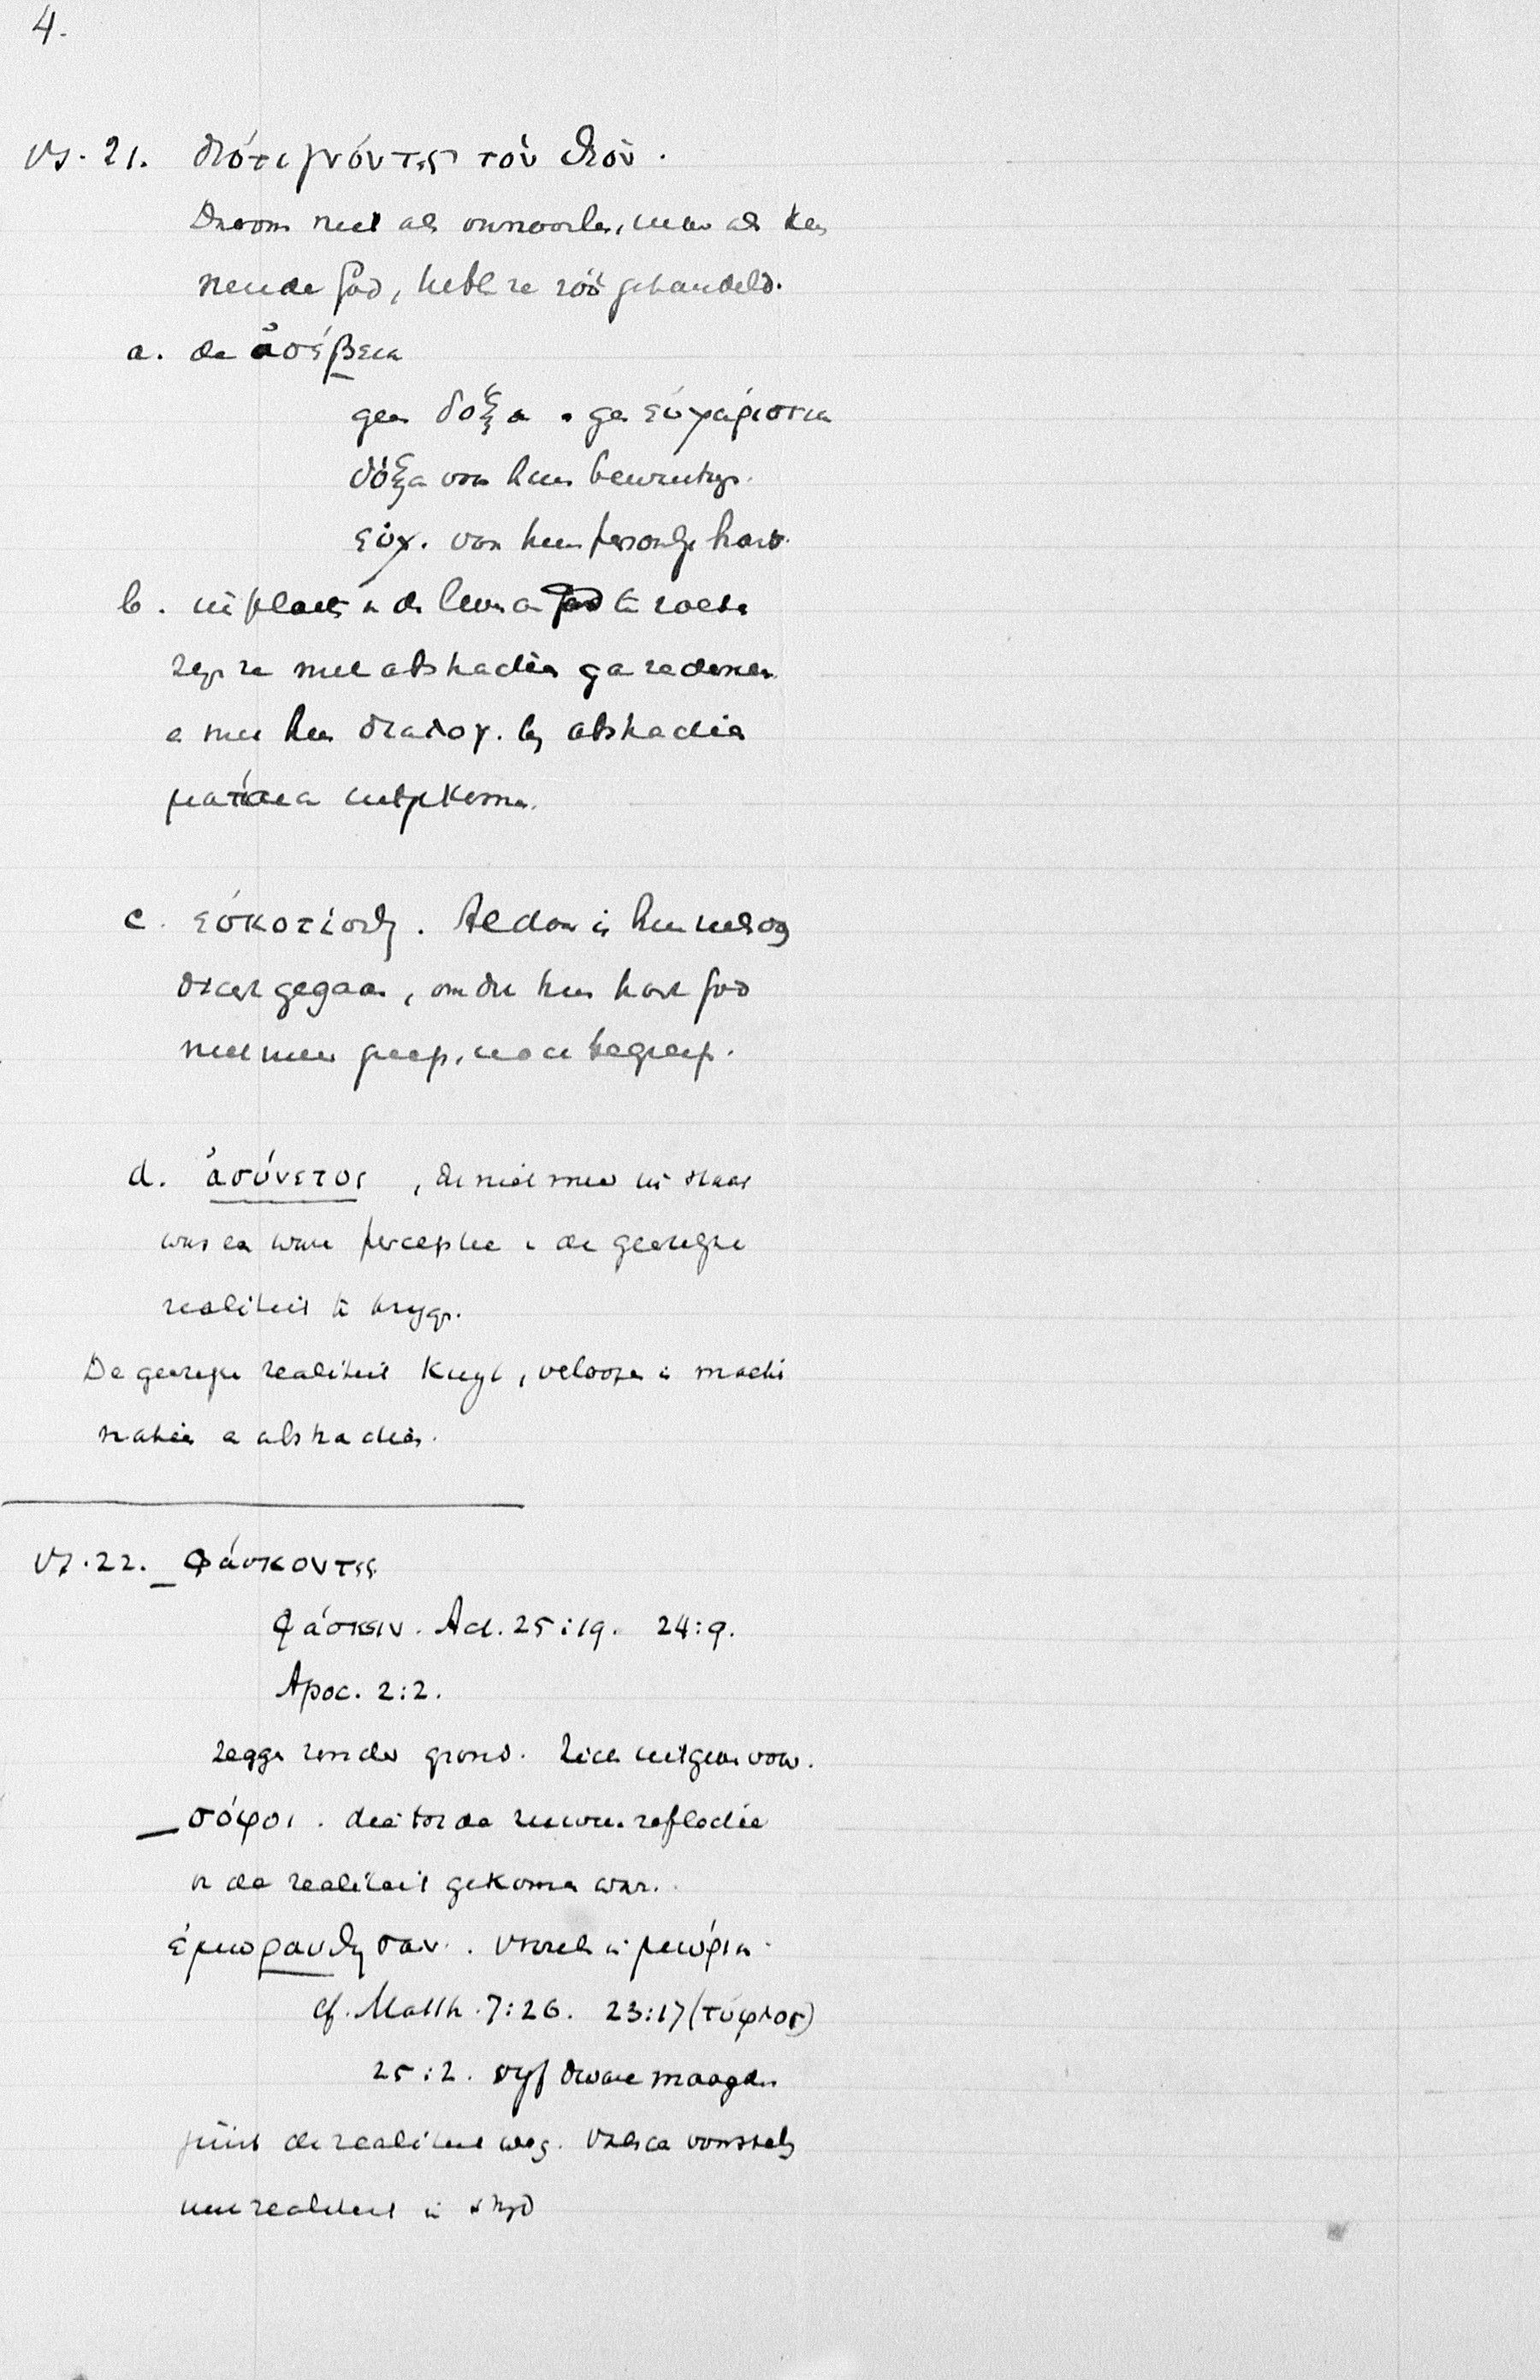 4.
vs. 21. διότι γνόντες τὸν θεὸν.
Daarom niet als onnoozelen, maar als ken
nende God, hebben ze zóó gehandeld.
a. de ἀσέβεια
geen δόξα. geen εὐχάριστια
δόξα van hun bewustzijn.
εὐχ. van hun persoonlijk hart.
b. in plaats in de God te zoeken
zijn ze met abstractiën gaan redeneren
en met hun διαλογ. bij abstractiën
μάταια uitgekomen.
c. ἐσκοτίσθη. daar is hun
gegaan, omdat hun hart God
niet meer greep, noch begreep.
d. ἀσύνετος, die niet meer in staat
was een ware perceptie in de geestelijke
realiteit te krijgen.
De geestelijke realiteit kwijt, verloopen in machi
natiën en abstractiën.
vs. 22. _ φάσκοντες
φάσκειν. Act. 25:19. 24:9.
Apoc. 2:2.
zeggen zonder grond. Zich uitgeven voor.
_ σόφοι. die tot de ware reflectie
in de realiteit gekomen waren.
ἐμωράνθησαν. in μωρία.
cf. Matth. 7:26. 23:17 (τύφλοι)
25:2. vijf dwaze maagden
juist de realiteit weg.
met realiteit in strijd